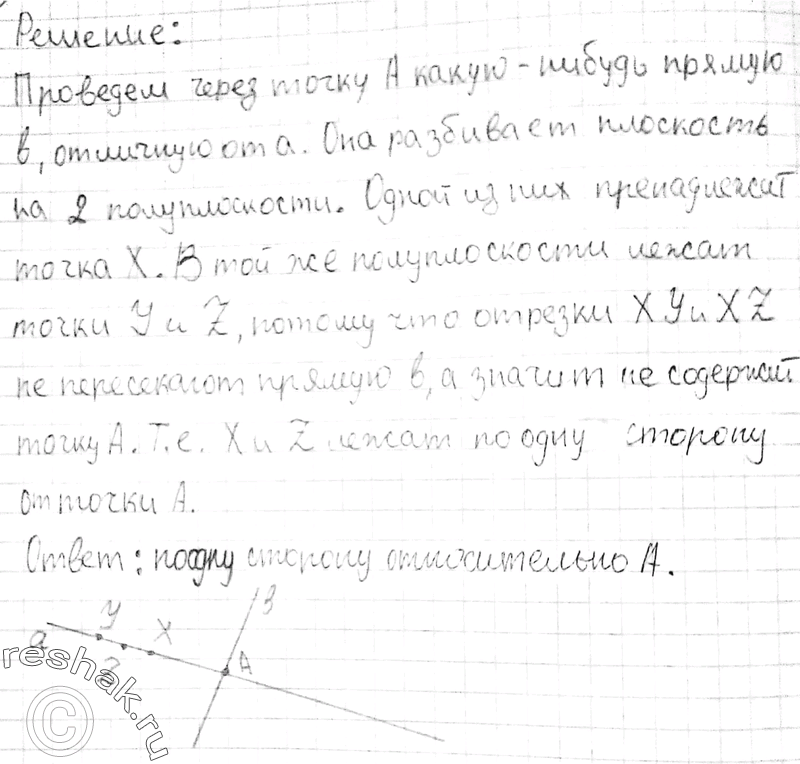 Решение:
Проведем через точку А какую-нибудь прямую
в, отличную от а. Она разбивает плоскость
на 2 полуплоскости. Одной из них пренадлежит
точка X. В той же полуплоскости лежат
точки Y и Z, потому что отрезки XY и XZ
не пересекают прямую в, а значит не содержат
точку А. Т.е. X и Z лежат по одну сторону
от точки А.
Ответ: по одну сторону относительно А.
а Y Z X А в
reshak.ru
©